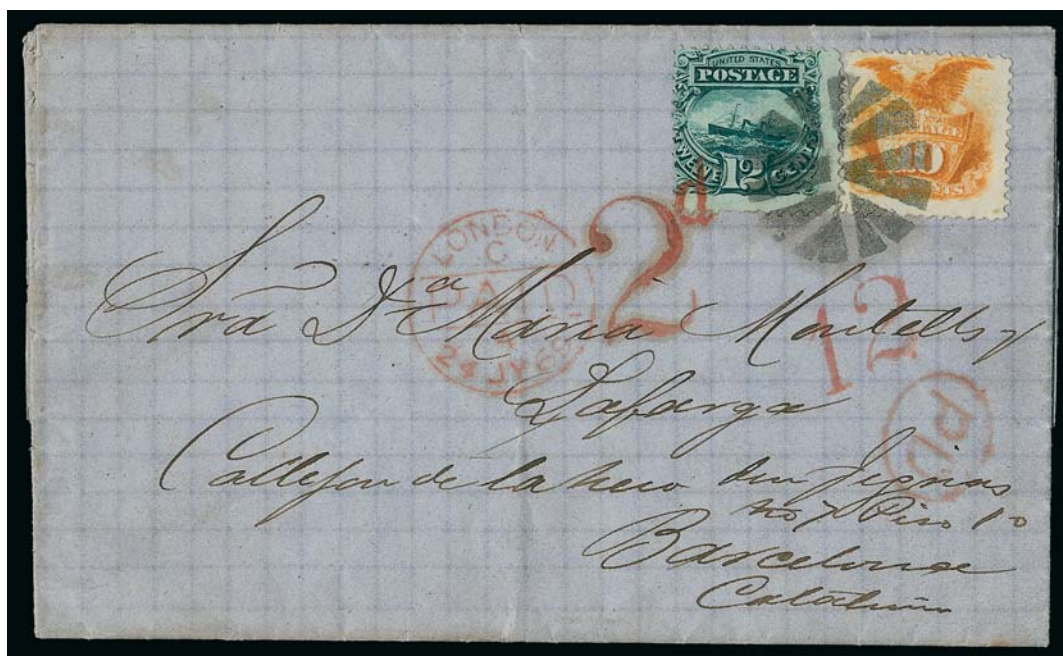 UNITED STATES
POSTAGE
12
TWELVE CENTS
10
CENTS
LONDON
C
PAID
24 JY 69
2d
12
PD
Sra Da Maria Montells y
Lafarga
Callejon de
Piso 1o
Barcelona
Cataluña